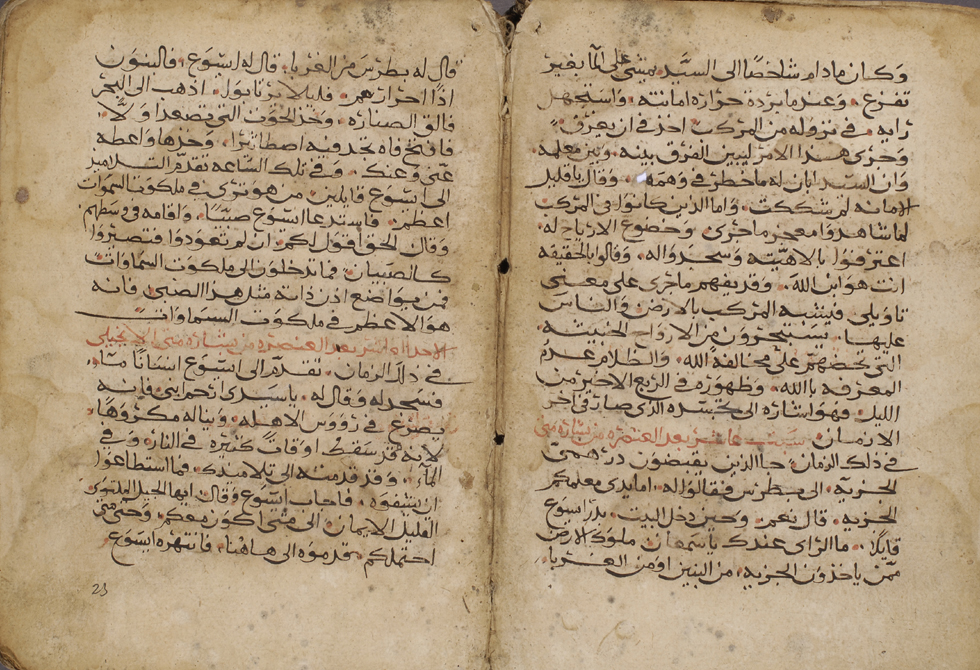 وكان مادام شاخصًا الى السيّد يمشي على الما بغير
تفزع . وعندما بردة حرارة امانته . واستجهل
رايه . في نزوله من المركب اخذ في ان يغرق .
وجرى هذا الامر ليبين الفرق بينه . وبين معلمه .
وان السيد ابان له ما خطر في وهمه . وقال يا قليل
الامانه لم شككت . واما الذين كانوا في المركب
لما شاهدوا معجز ما جرى . وخضوع الارياح له .
اعترفوا بالاهيته وسجدوا له . وقالوا بالحقيقه
انت هو ابن الله . وقد يفهم ما جرى على معنى
تاويلي . فليشبه المركب بالارض والناس
عليها . يستجيرون من الارواح الخبيثه .
التي تحضهم على مخالفة الله . والظلام عدم
المعرفه بالله . وظهوره في الربع الاخير من
الليل . فهو اشاره الى تجسده الذي صار في اخر
الازمان . سبت عاشر بعد العنصره من بشارة متى
في ذلك الزمان . جا الذين يقبضون درهمي
الجزيه . الى بطرس فقالوا له . اما يدي معلمكم
الجزيه . قال نعم . وحين دخل البيت . بدر ايسوع
قايلًا . ما الراي عندك يا سمعان ملوك الارض
ممّن ياخذون الجزيه . من البنين او من الغربا .
قال له بطرس من الغربا . قال له ايسوع . فالبنون
اذًا احرار هم . فليلا نرتابوا . اذهب الى البحر
فالق الصناره . وخذ الحوت التي تصعد اولًا .
فافتح فاه تجد فيه اصطاثيرا . وخذها واعطه
عنّي وعنك . وفي تلك الساعه تقدم التلاميذ
الى ايسوع قايلين . من هو ترى في ملكوت السموات
اعظم . فاستدعا ايسوع صبيًّا . واقامه في وسطهم
وقال الحق اقول لكم . ان لم تعودوا فتصيروا
كالصبيان . فما تدخلون الى ملكوت السماوات
فمن يواضع اذن ذاته مثل هذا الصبي . فانه
هو الاعظم في ملكوت السماوات
الاحد العاشر بعد العنصره من بشارة متى الانجيلي
في ذلك الزمان . تقدم الى ايسوع انسانًا ما .
فسجد له وقال له . يا سيدي ارحم ابني فانه
يصرع في رووس الاهله . ويناله مكروهًا .
لانه قد سقط اوقاتً كثيره في النار . وفي
الماء . وقد قدمته الى تلاميذك . فما استطاعوا
ان يشفوه . فاجاب ايسوع وقال . ايها الجيل الملتوي
القليل الايمان . الى متى اكون معكم . وحتى متى
احتملكم . قدموه الى هاهنا . فانتهره ايسوع
23